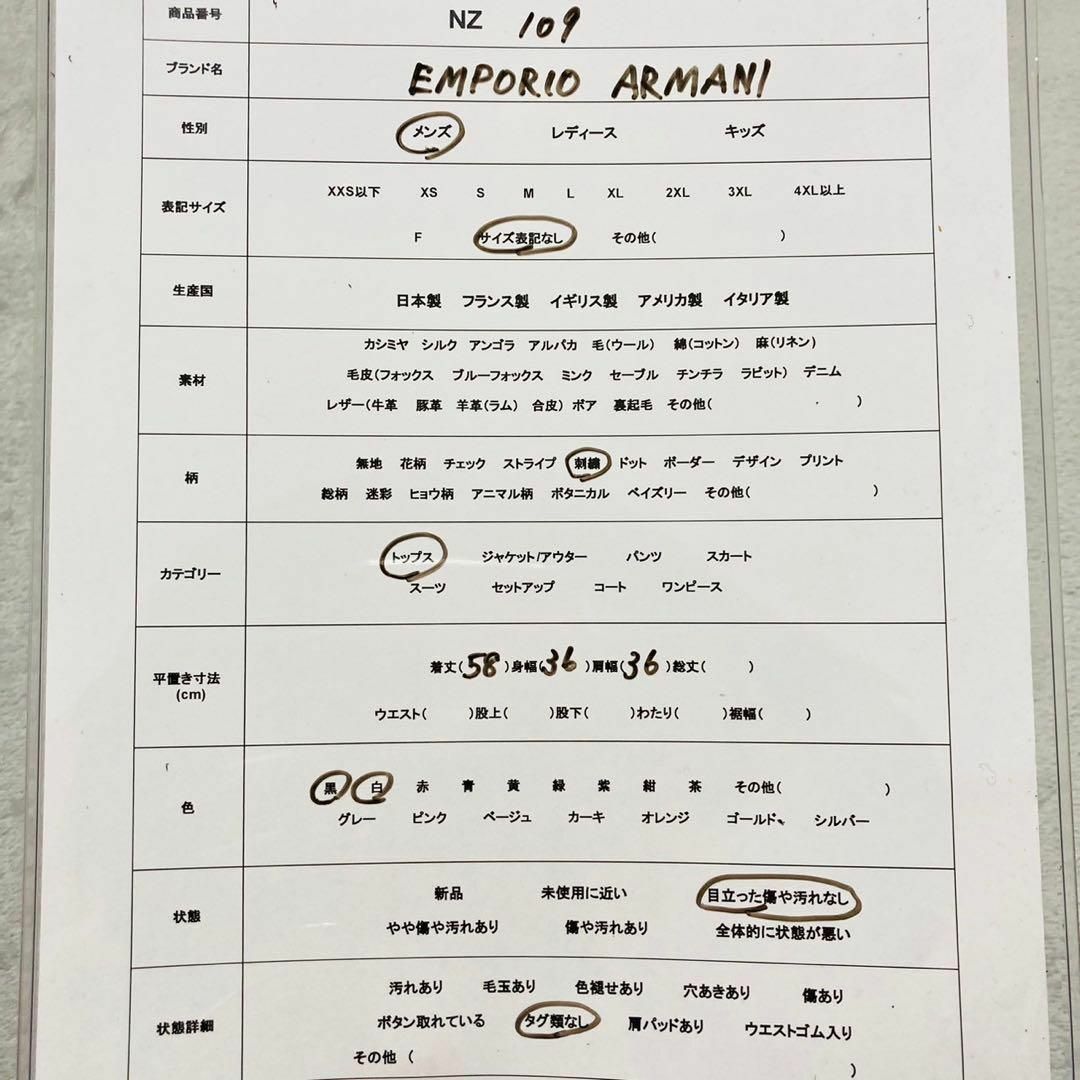 商品番号 NZ 109
ブランド名 EMPORIO ARMANI
性別 メンズ レディース キッズ
XXS以下 XS S M L XL 2XL 3XL 4XL以上
表記サイズ
F サイズ表記なし その他( )
生産国 日本製 フランス製 イギリス製 アメリカ製 イタリア製
カシミヤ シルク アンゴラ アルパカ 毛(ウール) 綿(コットン) 麻(リネン)
素材 毛皮(フォックス ブルーフォックス ミンク セーブル チンチラ ラビット) デニム
レザー(牛革 豚革 羊革(ラム) 合皮) ボア 裏起毛 その他( )
柄 無地 花柄 チェック ストライプ 刺繍 ドット ボーダー デザイン プリント
総柄 迷彩 ヒョウ柄 アニマル柄 ボタニカル ペイズリー その他( )
トップス ジャケット/アウター パンツ スカート
カテゴリー
スーツ セットアップ コート ワンピース
平置き寸法 着丈(58)身幅(36)肩幅(36)総丈( )
(cm)
ウエスト( )股上( )股下( )わたり( )裾幅( )
黒 白 赤 青 黄 緑 紫 紺 茶 その他( )
色
グレー ピンク ベージュ カーキ オレンジ ゴールド、 シルバー
新品 未使用に近い 目立った傷や汚れなし
状態
やや傷や汚れあり 傷や汚れあり 全体的に状態が悪い
汚れあり 毛玉あり 色褪せあり 穴あきあり 傷あり
状態詳細 ボタン取れている タグ類なし 肩パッドあり ウエストゴム入り
その他 ( )